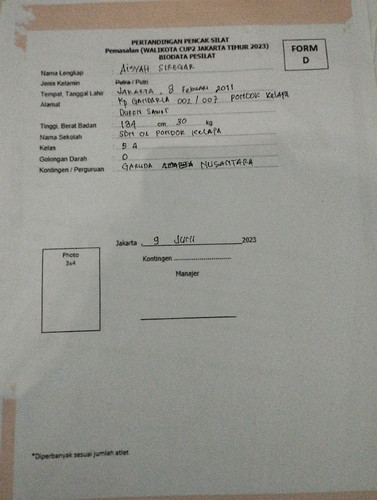 PERTANDINGAN PENCAK SILAT
Pemasalan (WALIKOTA CUP2 JAKARTA TIMUR 2023)
BIODATA PESILAT
FORM
D
Nama Lengkap AISYAH SIREGAR
Jenis Kelamin Putra / Putri
Tempat, Tanggal Lahir JAKARTA, 8 Februari 2011
Alamat Kp GANDARIA 001 / 007 PONDOK KELAPA
DUREN SAWIT
Tinggi, Berat Badan 134 cm 30 kg
Nama Sekolah SDN 01 PONDOK KELAPA
Kelas 5 A
Golongan Darah O
Kontingen / Perguruan GARUDA NUSANTARA
Jakarta, 9 JUNI 2023
Photo
3x4
Kontingen ........................
Manajer
*Diperbanyak sesuai jumlah atlet